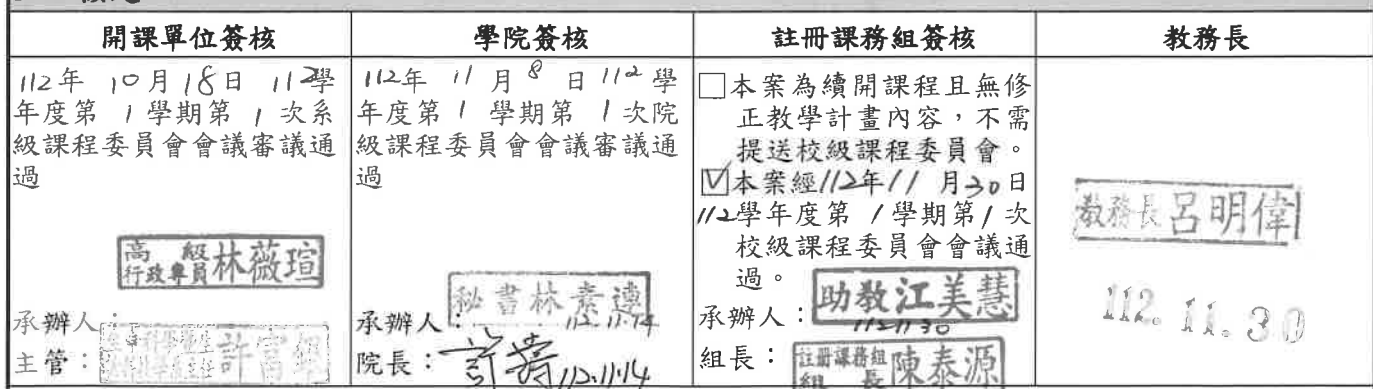 開課單位簽核
112年 10月 18日 112學
年度第 1學期第 1 次系
級課程委員會會議審議通
過
高級行政專員林薇瑄
承辦人：
主管：
學院簽核
112年 11月 8 日 112學
年度第 1 學期第 1次院
級課程委員會會議審議通
過
秘書林素連
承辦人： 112.11.14
院長： 112.11.14
註冊課務組簽核
□本案為續開課程且無修
正教學計畫內容，不需
提送校級課程委員會。
☑本案經112年11 月30日
112學年度第 1學期第1次
校級課程委員會會議通
過。
助教江美慧
承辦人： 1121130
組長： 註冊課務組組長陳泰源
教務長
教務長呂明偉
112. 11. 30